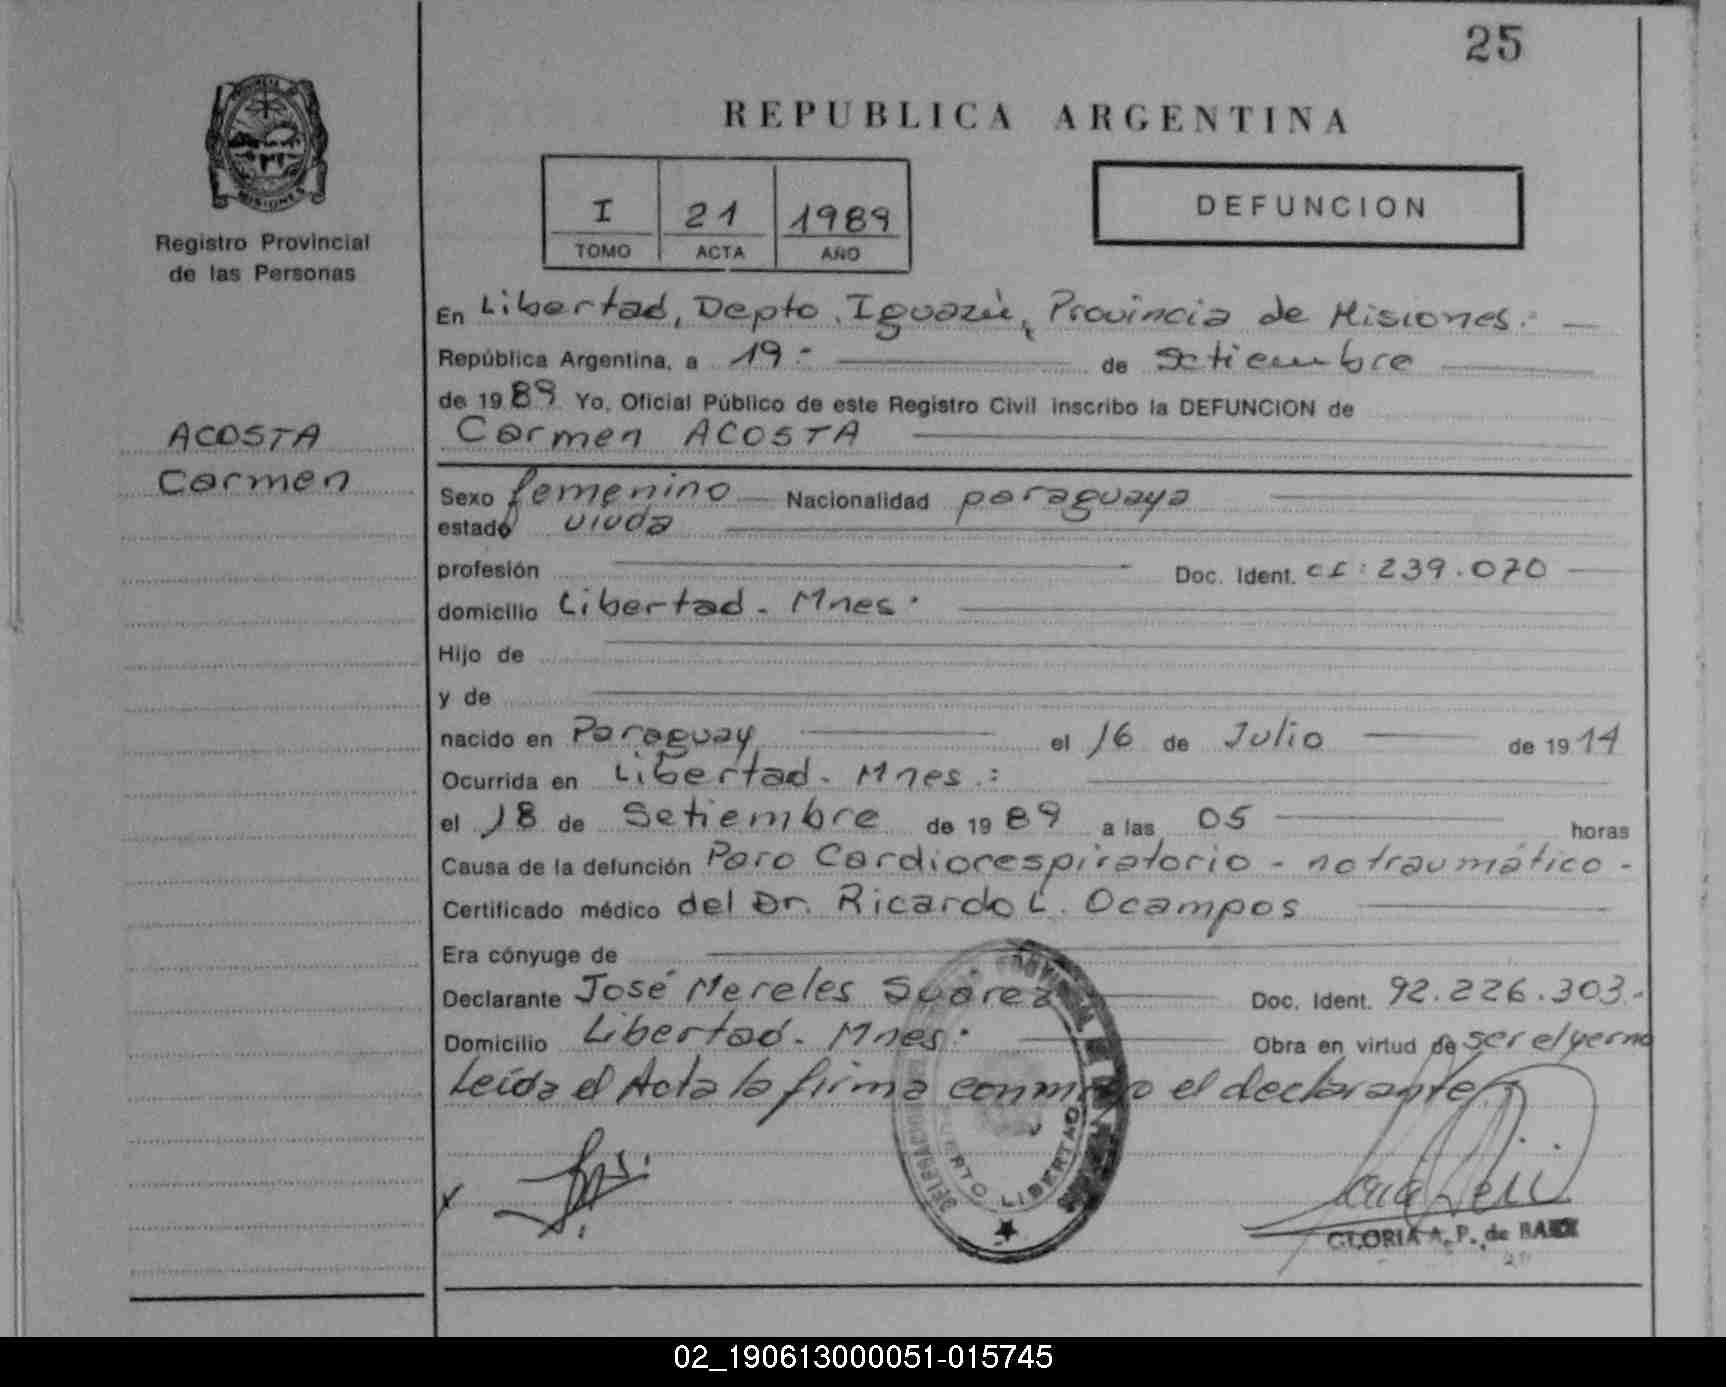 25
REPUBLICA ARGENTINA
I 21 1989
TOMO ACTA AÑO
DEFUNCION
MISIONES
Registro Provincial
de las Personas
ACOSTA
Carmen
En Libertad, Depto. Iguazú, Provincia de Misiones. —
República Argentina, a 19 - de Setiembre
de 1989 Yo, Oficial Público de este Registro Civil inscribo la DEFUNCION de
Carmen ACOSTA
Sexo femenino Nacionalidad paraguaya
estado viuda
profesión Doc. Ident. CI: 239.070
domicilio Libertad. Mnes.
Hijo de
y de
nacido en Paraguay el 16 de Julio de 1914
Ocurrida en Libertad. Mnes.:
el 18 de Setiembre de 1989 a las 05 horas
Causa de la defunción Paro Cardiorespiratorio - no traumático -
Certificado médico del Dr. Ricardo L. Ocampos
Era cónyuge de
Declarante José Mereles Suarez Doc. Ident. 92.226.303.-
Domicilio Libertad. Mnes. Obra en virtud de ser el yerno
Leída el Acta la firma conmigo el declarante
LIBERTAD
GLORIA A. P. de
02_190613000051-015745